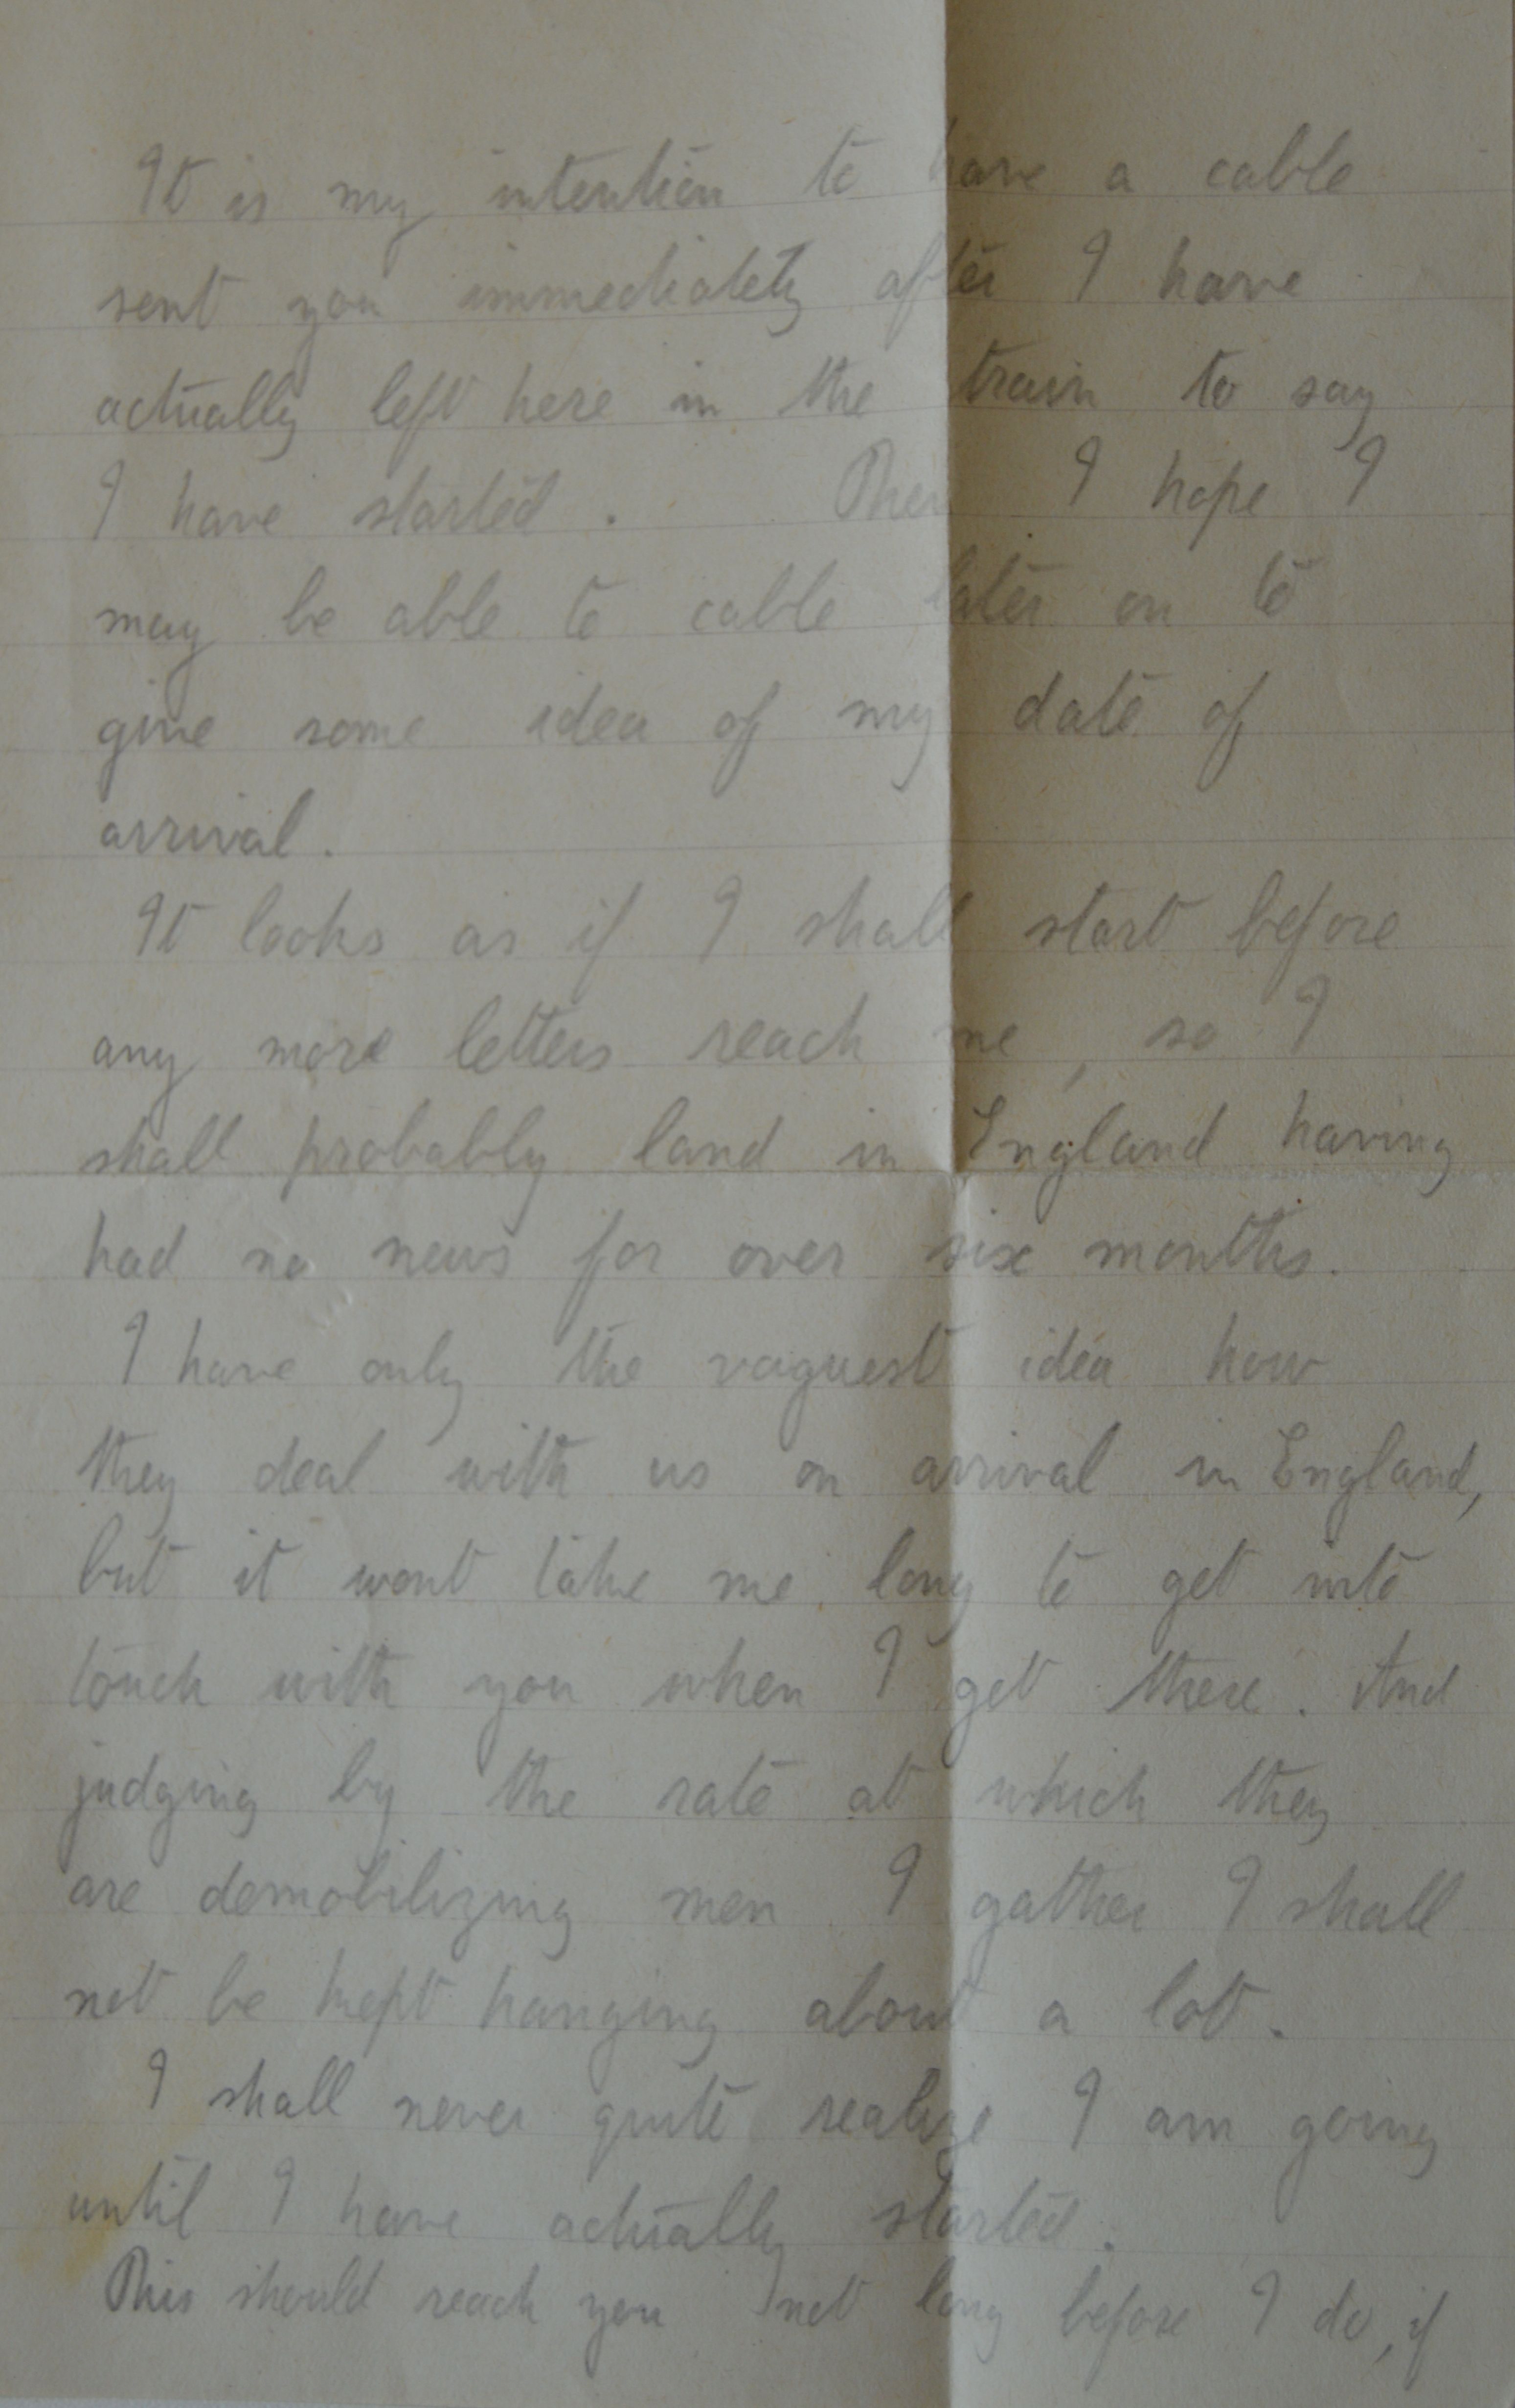 It is my intention to have a cable
sent you immediately after I have
actually left here in the train to say
I have started. Then I hope I
may be able to cable later on to
give some idea of my date of
arrival.
It looks as if I shall start before
any more letters reach me, so I
shall probably land in England having
had no news for over six months.
I have only the vaguest idea how
they deal with us on arrival in England,
but it wont take me long to get into
touch with you when I get there. And
judging by the rate at which they
are demobilizing men I gather I shall
not be kept hanging about a lot.
I shall never quite realize I am going
until I have actually started.
This should reach you not long before I do, if